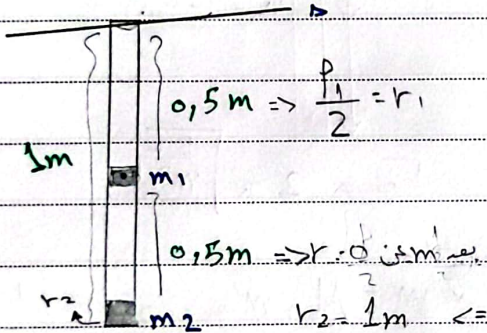 0,5m => ρ₁/2 = r₁
1m
m₁
0,5m => r
m₂
r₂
r₂ = 1m <=